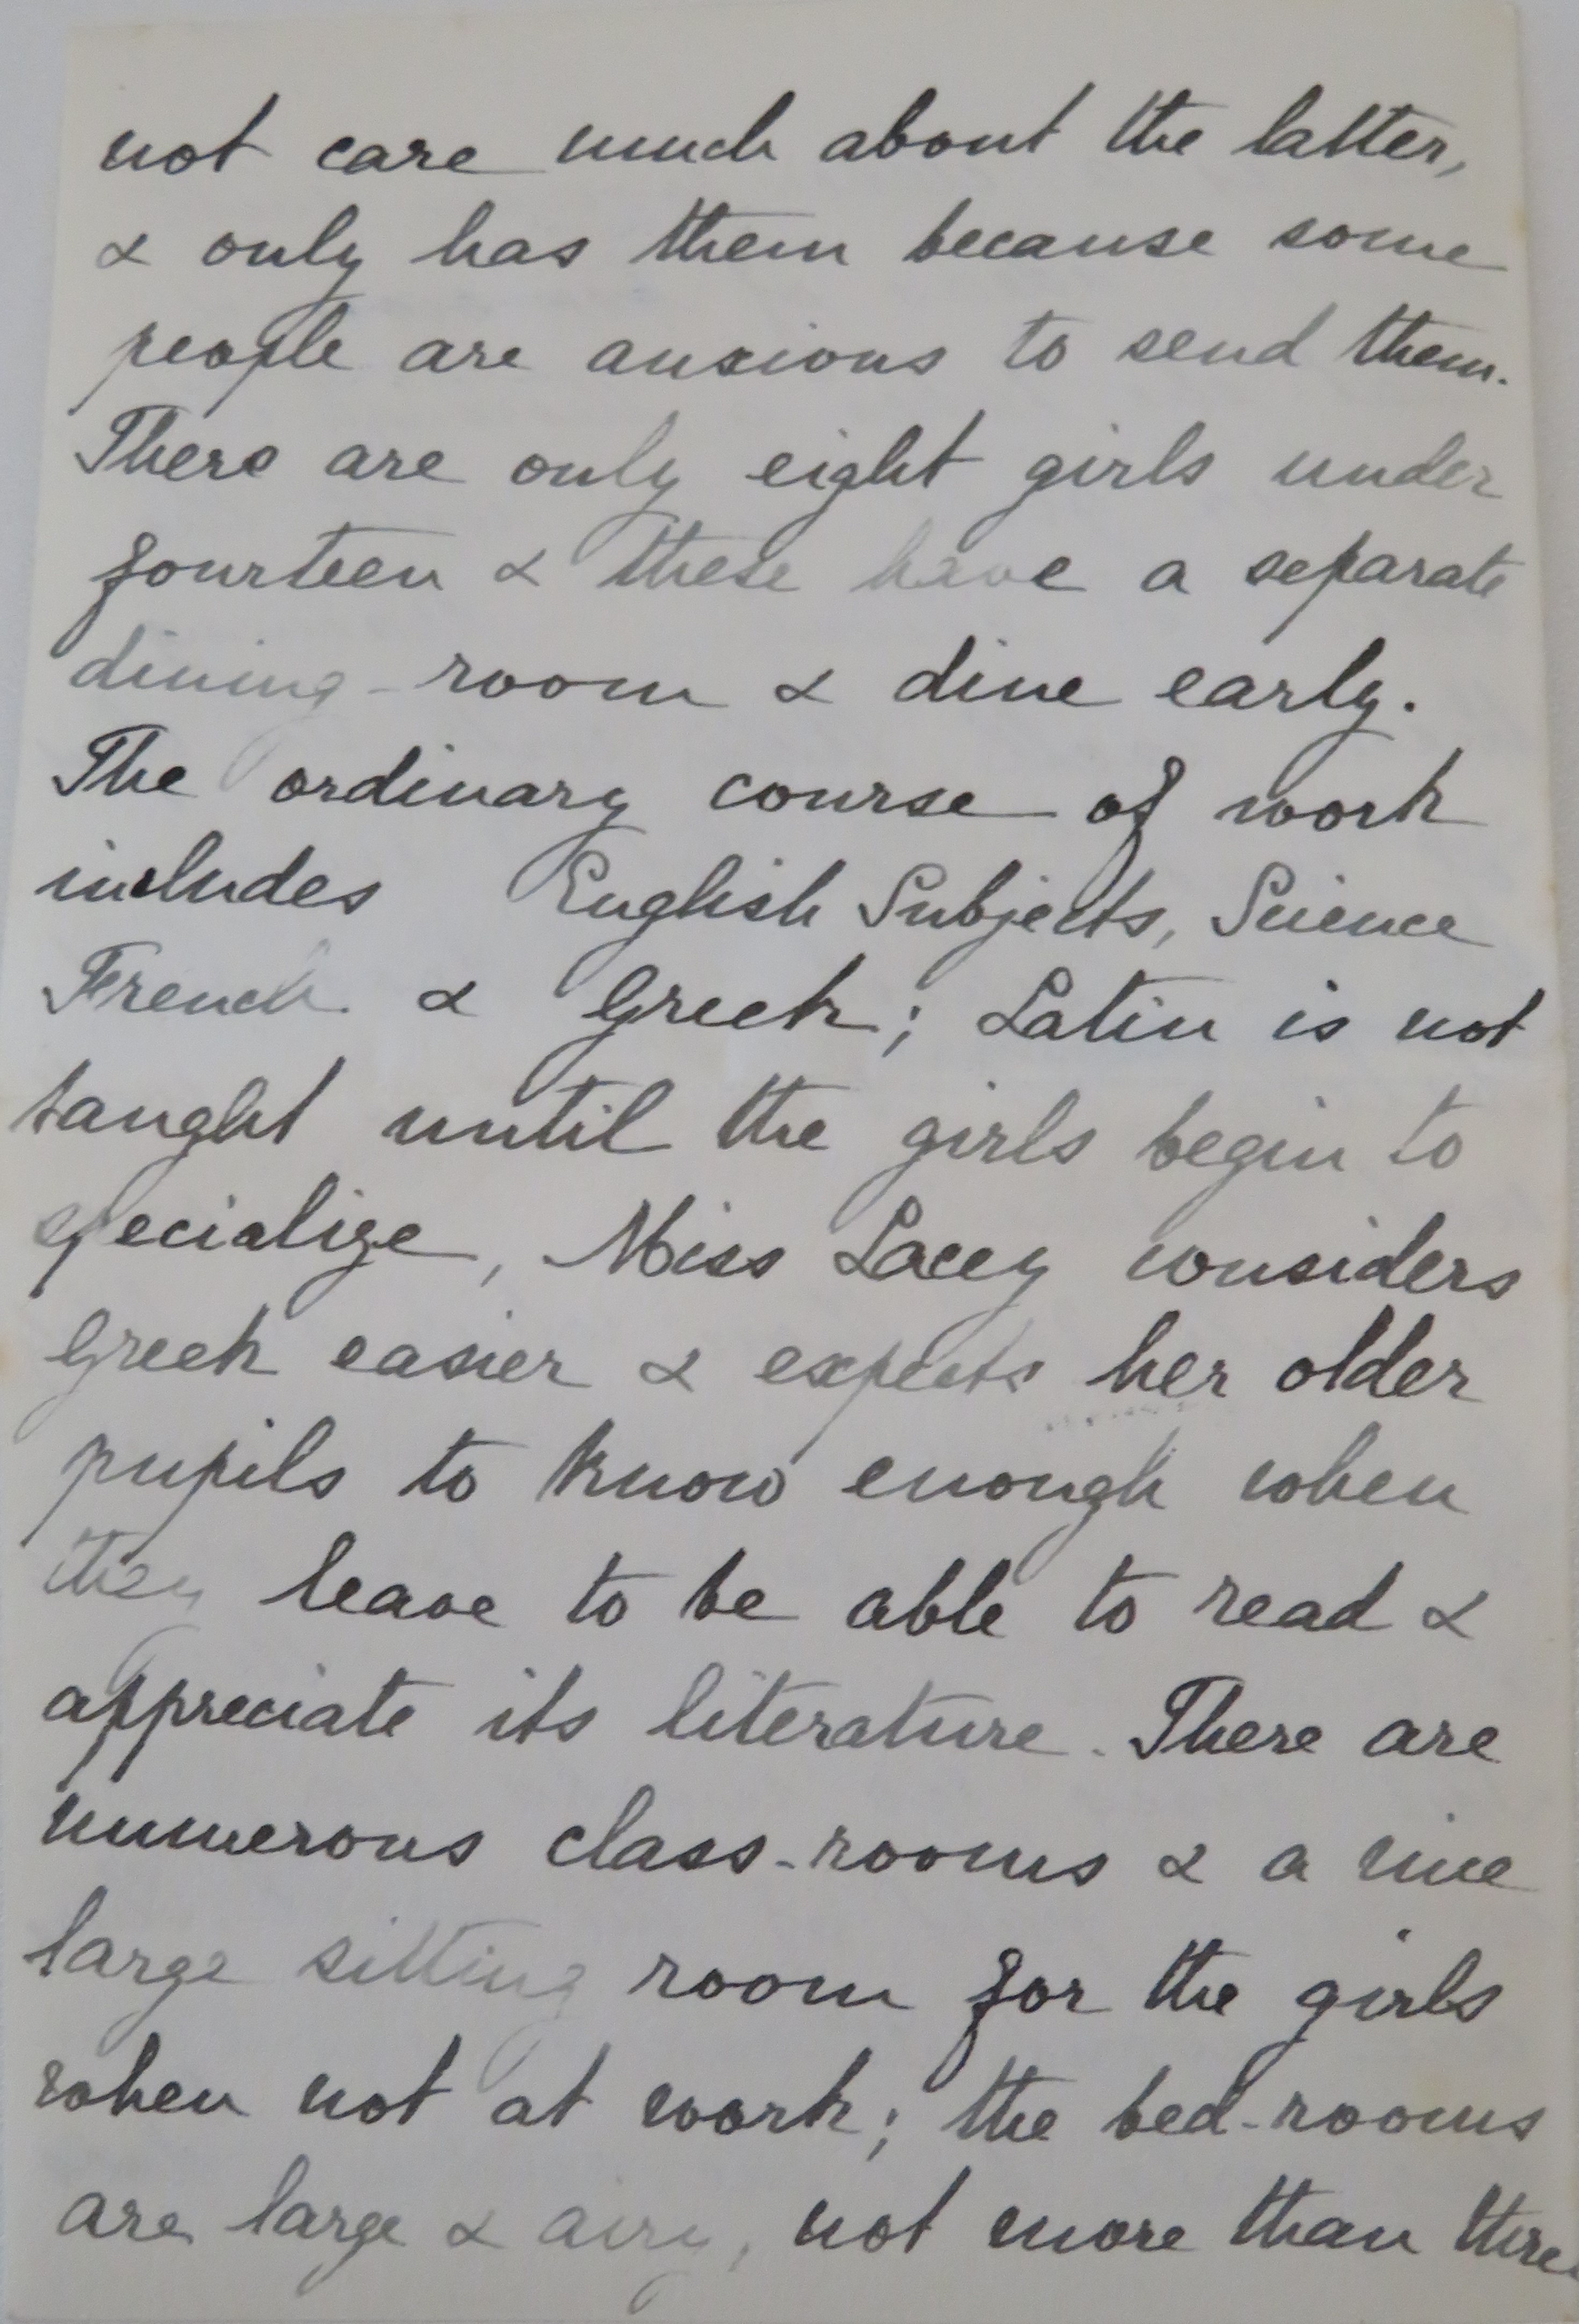 not care much about the latter,
& only has them because some
people are anxious to send them.
There are only eight girls under
fourteen & these have a separate
dining-room & dine early.
The ordinary course of work
includes English Subjects, Science
French & Greek; Latin is not
taught until the girls begin to
specialize, Miss Lacey considers
Greek easier & expects her older
pupils to know enough when
they leave to be able to read &
appreciate its literature. There are
numerous class-rooms & a nice
large sitting room for the girls
when not at work; the bed-rooms
are large & airy, not more than three